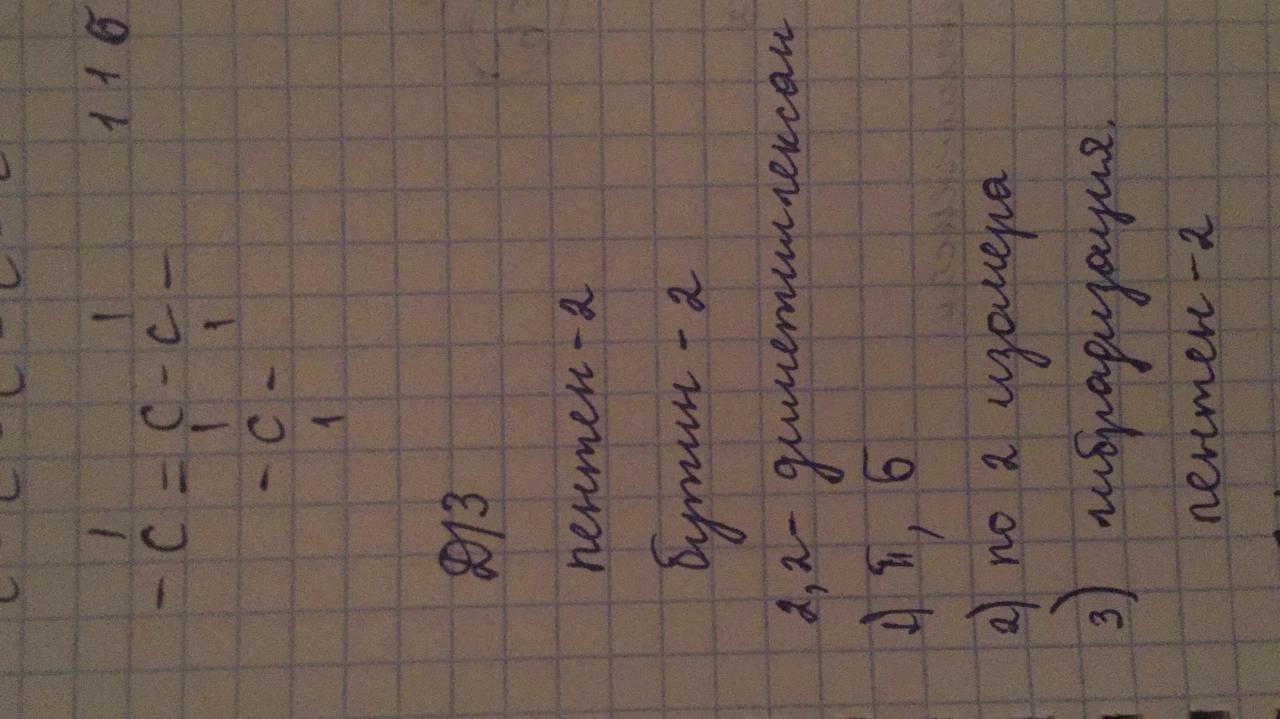 11б
-С=С-С-
-С-
Д/З
пентен-2
бутин-2
2,2-диметилгексан
1) π, б
2) по 2 изомера
3) гибрадизация.
пентен-2